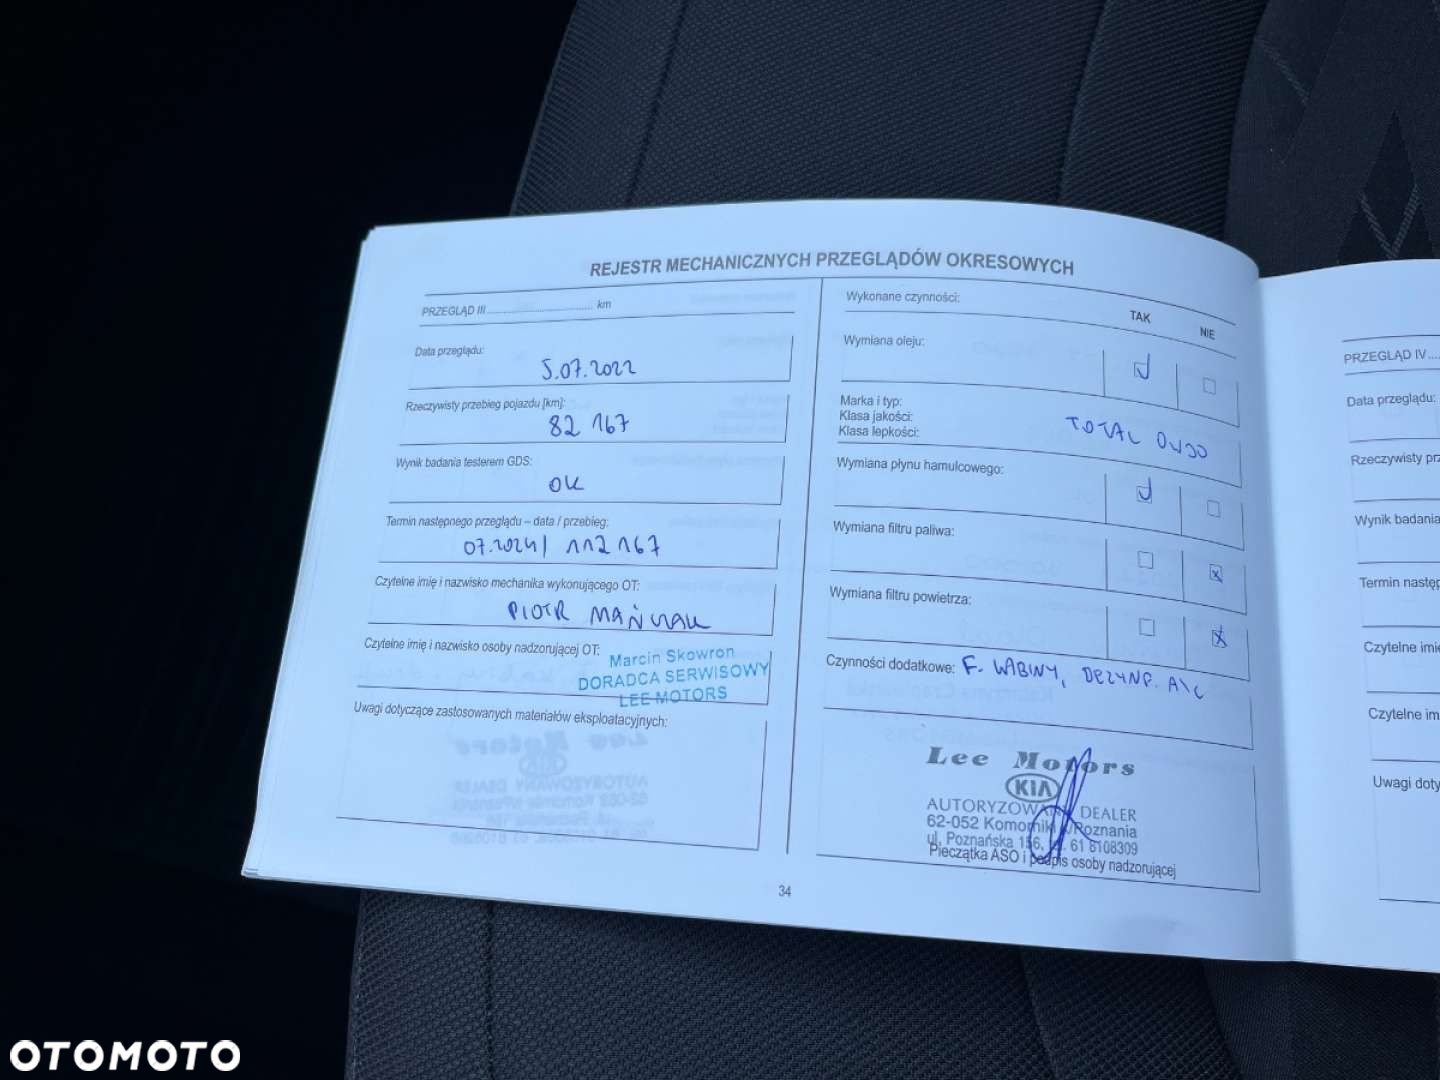 REJESTR MECHANICZNYCH PRZEGLĄDÓW OKRESOWYCH
PRZEGLĄD III .......................................... km
Data przeglądu:
5.07.2022
Rzeczywisty przebieg pojazdu [km]:
82 167
Wynik badania testerem GDS:
OK
Termin następnego przeglądu – data / przebieg:
07.2024 / 112 167
Czytelne imię i nazwisko mechanika wykonującego OT:
PIOTR
Czytelne imię i nazwisko osoby nadzorującej OT:
Marcin Skowron
DORADCA SERWISOWY
LEE MOTORS
Uwagi dotyczące zastosowanych materiałów eksploatacyjnych:
Wykonane czynności:
TAK NIE
Wymiana oleju:
Marka i typ:
Klasa jakości:
Klasa lepkości:
TOTAL 0W30
Wymiana płynu hamulcowego:
Wymiana filtru paliwa:
Wymiana filtru powietrza:
Czynności dodatkowe: F. KABINY, DEZYNF. A/C
Lee Motors
KIA
AUTORYZOWANY DEALER
62-052 Komorniki k/Poznania
ul. Poznańska 156, 61 8108309
Pieczątka ASO i podpis osoby nadzorującej
34
PRZEGLĄD IV ....
Data przeglądu:
Rzeczywisty
Wynik badania
Termin
Czytelne
Czytelne
Uwagi
OTOMOTO